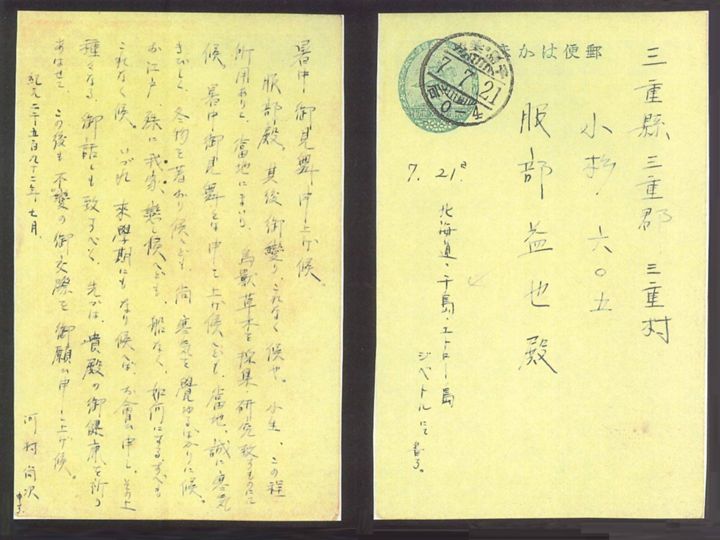 郵便はかき
7.7.21
0-4
三重縣三重郡三重村
小杉・六〇五
服部益也殿
7. 21日 北海道・千島・エトロフ島
ジベトルにて
書る。
暑中御見舞申上げ候。
服部殿其後御變りこれなく候や。小生、この程
所用ありて、當地にまいり、鳥獸草木を採集研究致すものにて
候。暑中御見舞とは申し上げ候へども、當地、誠に寒気
きびしく、冬物を着 候へども、尚寒気を覺ゆるばかりに候。
お江戸殊に我家戀し候へども、船なく、如何にするすべも
これなく候。いづれ來學期にもなり候へば、お會申し、その上
種々なる御話しも致すべく、先づは、貴殿の御健康を祈り
あはせて、この後も不變の御交際を御願申し上げ候。
紀元二千五百九十二年七月、
河村尚次
申す。